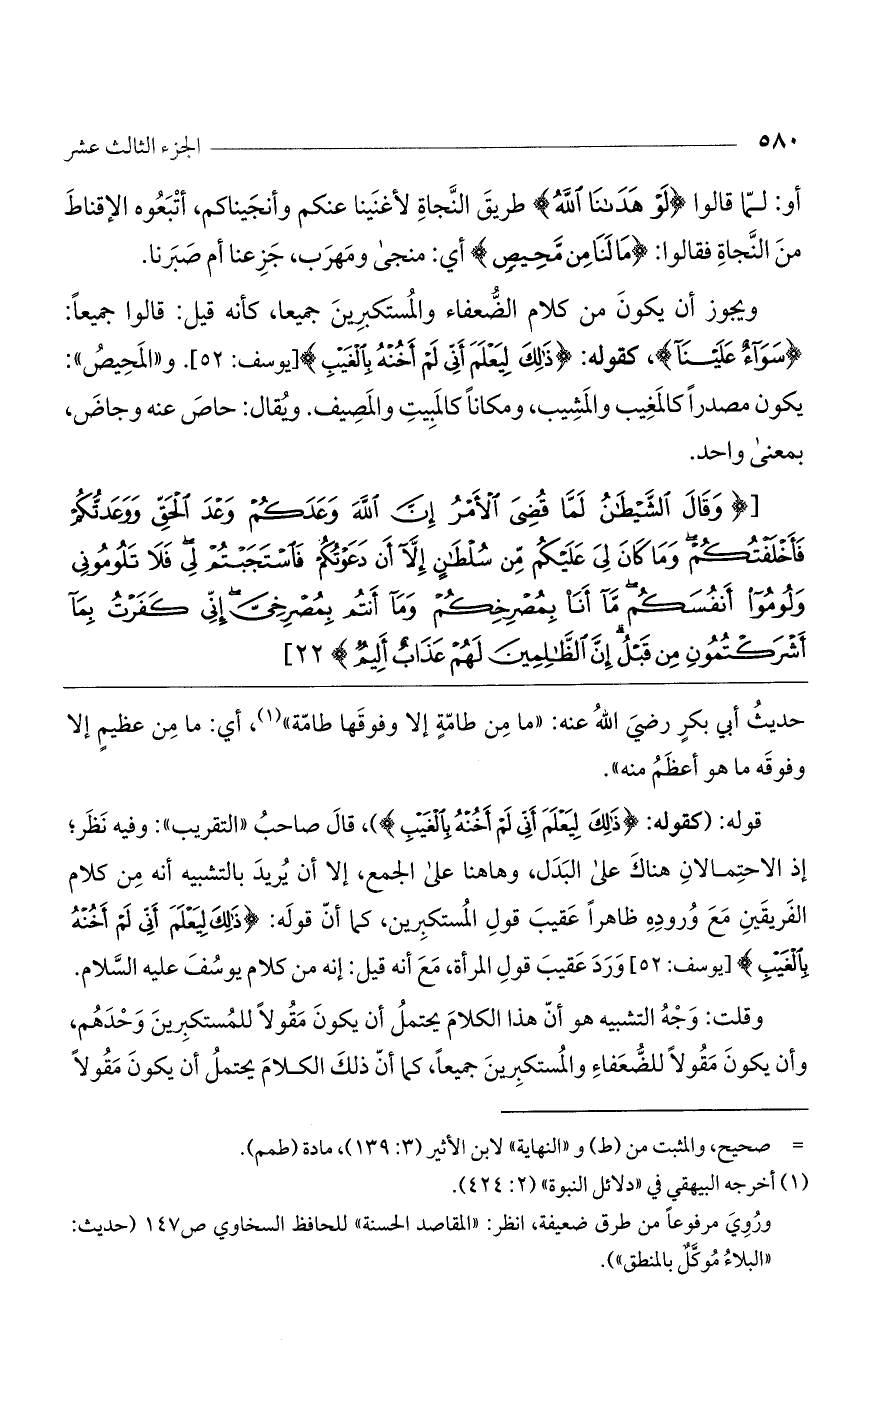 ٥٨٠ الجزء الثالث عشر
أو: لـمّا قالوا ﴿لَوْ هَدَىٰنَا ٱللَّهُ﴾ طريقَ النَّجاةِ لأغنَينا عنكم وأنجَيناكم، أتْبَعُوه الإقناطَ
منَ النَّجاةِ فقالوا: ﴿مَا لَنَا مِن مَّحِيصٍ﴾ أي: منجىٰ ومَهرَب، جَزِعنا أم صَبَرنا.
ويجوز أن يكونَ من كلام الضُّعفاء والمُستَكبِرينَ جميعا، كأنه قيل: قالوا جميعاً:
﴿سَوَآءٌ عَلَيْـنَآ﴾، كقوله: ﴿ذَٰلِكَ لِيَعْلَمَ أَنِّى لَمْ أَخُنْهُ بِٱلْغَيْبِ﴾[يوسف: ٥٢]. و«المَحِيصُ»:
يكون مصدراً كالمَغِيب والمَشِيب، ومكاناً كالمَبِيتِ والمَصِيف. ويُقال: حاصَ عنه وجاضَ،
بمعنىٰ واحد.
[﴿وَقَالَ ٱلشَّيْطَٰنُ لَمَّا قُضِىَ ٱلْأَمْرُ إِنَّ ٱللَّهَ وَعَدَكُمْ وَعْدَ ٱلْحَقِّ وَوَعَدتُّكُمْ
فَأَخْلَفْتُكُمْ ۖ وَمَا كَانَ لِىَ عَلَيْكُم مِّن سُلْطَٰنٍ إِلَّآ أَن دَعَوْتُكُمْ فَٱسْتَجَبْتُمْ لِى ۖ فَلَا تَلُومُونِى
وَلُومُوٓا۟ أَنفُسَكُم ۖ مَّآ أَنَا۠ بِمُصْرِخِكُمْ وَمَآ أَنتُم بِمُصْرِخِىَّ ۖ إِنِّى كَفَرْتُ بِمَآ
أَشْرَكْتُمُونِ مِن قَبْلُ ۗ إِنَّ ٱلظَّٰلِمِينَ لَهُمْ عَذَابٌ أَلِيمٌ﴾ ٢٢]
حديثُ أبي بكرٍ رضيَ اللهُ عنه: «ما مِن طامّةٍ إلا وفوقَها طامّة»(١)، أي: ما مِن عظيمٍ إلا
وفوقَه ما هو أعظَمُ منه».
قوله: (كقوله: ﴿ذَٰلِكَ لِيَعْلَمَ أَنِّى لَمْ أَخُنْهُ بِٱلْغَيْبِ﴾)، قالَ صاحبُ «التقريب»: وفيه نَظَر؛
إذ الاحتِمـالانِ هناكَ علىٰ البَدَل، وهاهنا علىٰ الجمع، إلا أن يُريدَ بالتشبيه أنه مِن كلام
الفَريقَينِ مَعَ وُرودِهِ ظاهراً عَقيبَ قولِ المُستكبِرين، كما أنّ قولَه: ﴿ذَٰلِكَ لِيَعْلَمَ أَنِّى لَمْ أَخُنْهُ
بِٱلْغَيْبِ﴾ [يوسف: ٥٢] وَرَدَ عَقيبَ قولِ المرأة، مَعَ أنه قيل: إنه من كلام يوسُفَ عليه السَّلام.
وقلت: وَجْهُ التشبيه هو أنّ هذا الكلامَ يحتملُ أن يكونَ مَقُولاً للمُستكبِرينَ وَحْدَهُم،
وأن يكونَ مَقُولاً للضُّعَفاءِ والمُستكبِرينَ جميعاً، كما أنّ ذلكَ الكـلامَ يحتملُ أن يكونَ مَقُولاً
= صحيح، والمثبت من (ط) و «النهاية» لابن الأثير (٣: ١٣٩)، مادة (طمم).
(١) أخرجه البيهقي في «دلائل النبوة» (٢: ٤٢٤).
ورُوِيَ مرفوعاً من طرق ضعيفة، انظر: «المقاصد الحسنة» للحافظ السخاوي ص١٤٧ (حديث:
«البلاءُ مُوكَّلٌ بالمنطق»).